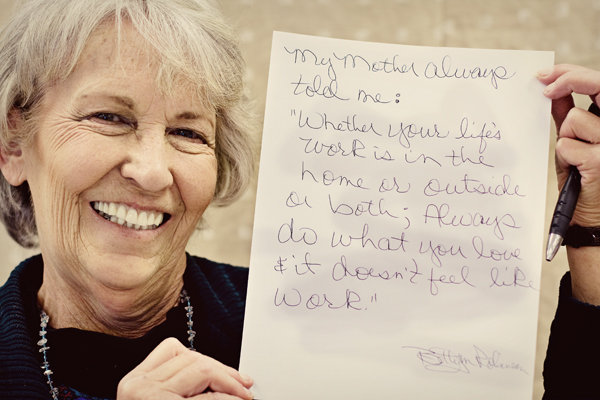 My Mother always
told me:
"Whether your life's
work is in the
home or outside
or both; Always
do what you love
& it doesn't feel like
work."